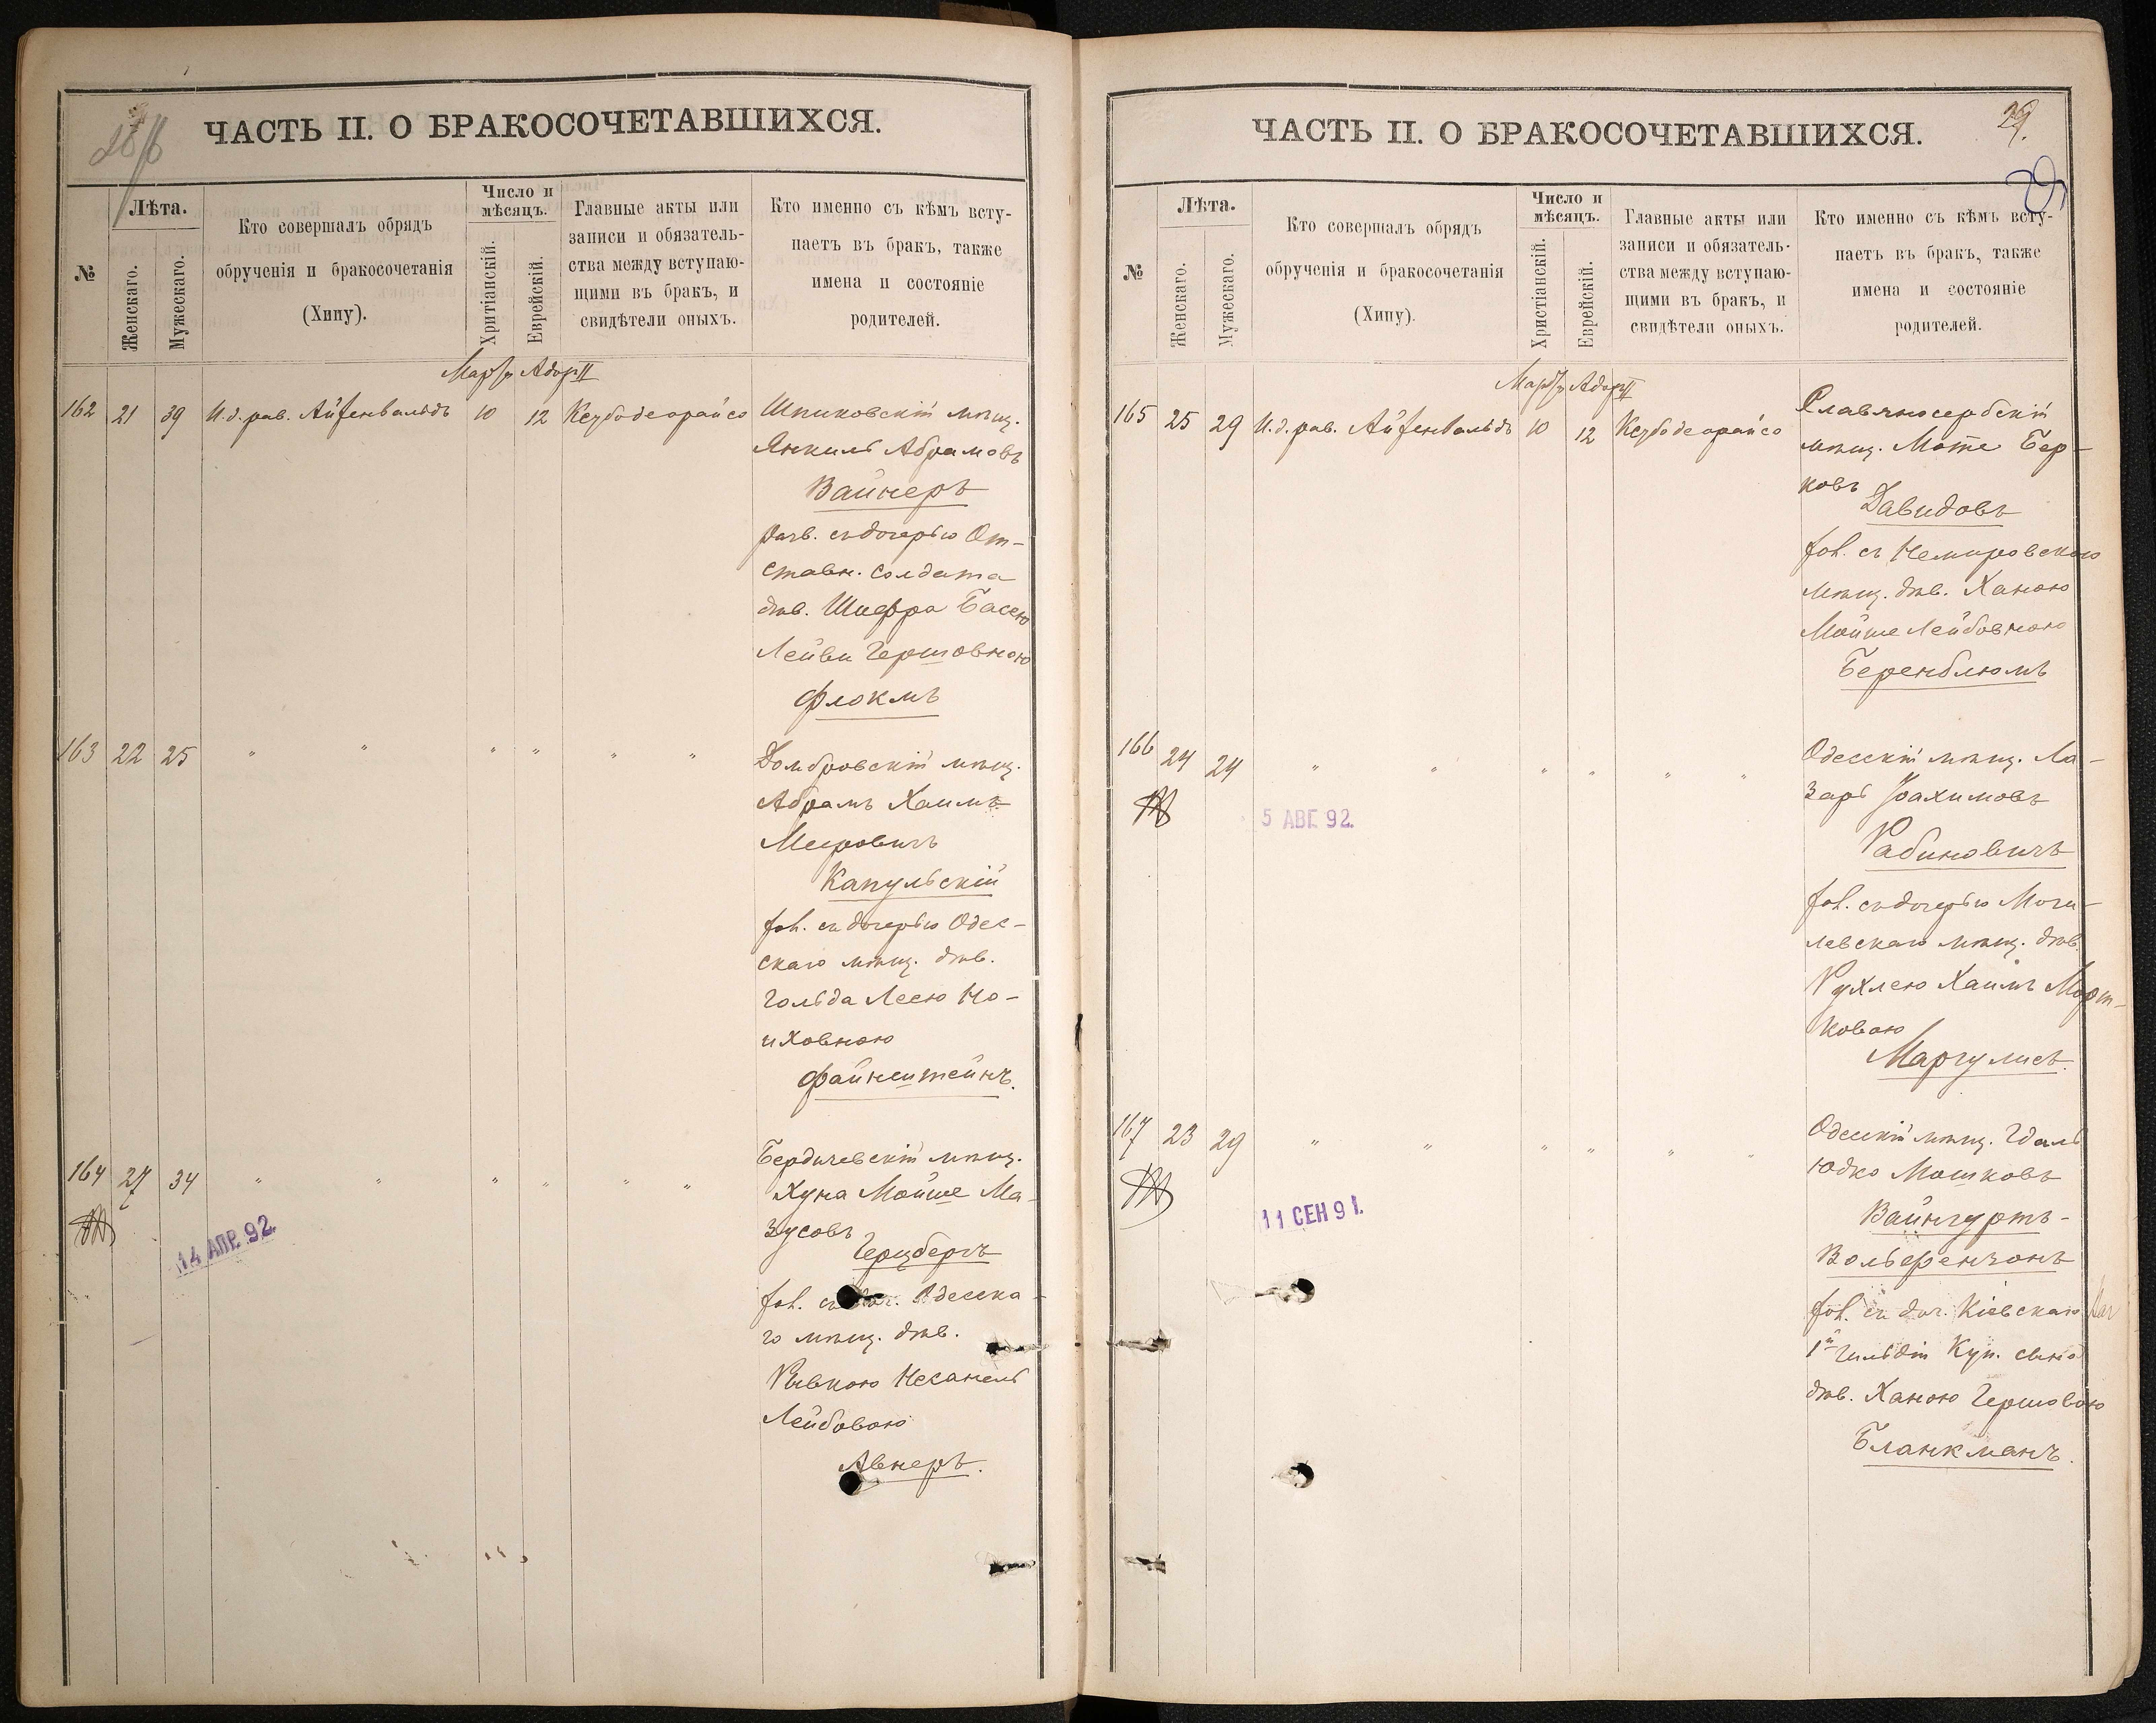 ЧАСТЬ II. О БРАКОСОЧЕТАВШИХСЯ.
№
Лѣта.
Женскаго.
Мужескаго.
Кто совершалъ обрядъ
обрученія и бракосочетанія
(Хипу).
Число и
мѣсяцъ.
Хритіанскій.
Еврейскій.
Главные акты или
записи и обязатель-
ства между вступаю-
щими въ бракъ, и
свидѣтели оныхъ.
Кто именно съ кѣмъ всту-
паетъ въ бракъ, также
имена и состояніе
родителей.
Мартъ Адаръ II
162 21 39 И.д.рав. Айзенвальдъ 10 12 Кезубодеорайсо
Шпиковскій мѣщ.
Янкиль Абрамовъ
Вайнеръ
разв. съ дочерью От-
ставн. солдата
дѣв. Шифра Басею
Лейви Гершовною
Флокмъ
163 22 25 " " " " " "
Домбровскій мѣщ.
Абрамъ Хаимъ
Меировичъ
Капульскій
хол. съ дочерью Одес-
скаго мѣщ. дѣв.
Гольда Леею Но-
иховною
Файнштейнъ.
164 27 34 " " " " " "
14 АПР. 92.
Бердичевскій мѣщ.
Хуна Мойше Ма-
зусовъ
Герцбергъ
хол. съ доч. Одесска-
го мѣщ. дѣв.
Ривкою Несанель
Лейбовою
Авнеръ.
ЧАСТЬ II. О БРАКОСОЧЕТАВШИХСЯ.
29.
29
№
Лѣта.
Женскаго.
Мужескаго.
Кто совершалъ обрядъ
обрученія и бракосочетанія
(Хипу).
Число и
мѣсяцъ.
Христіанскій.
Еврейскій.
Главные акты или
записи и обязатель-
ства между вступаю-
щими въ бракъ, и
свидѣтели оныхъ.
Кто именно съ кѣмъ всту-
паетъ въ бракъ, также
имена и состояніе
родителей.
Мартъ Адаръ II
165 25 29 И.д.рав. Айзенвальдъ 10 12 Кезубодеорайсо
Славяносербскій
мѣщ. Мотте Бер-
ковъ
Давидовъ
хол. съ Немировскою
мѣщ. дѣв. Ханою
Мойше Лейбовною
Беренблюмъ
166 24 24 " " " " " "
5 АВГ. 92.
Одесскій мѣщ. Ла-
зарь Іоахимовъ
Рабиновичъ
хол. съ дочерью Моги-
левскаго мѣщ. дѣв.
Рухлею Хаимъ Морт-
ковою
Маргулисъ.
167 23 29 " " " " " "
11 СЕН 91.
Одесскій мѣщ. Гдаль
Юдко Мошковъ
Вайнгуртъ-
Вольфензонъ
хол. съ доч. Кіевскаго
1й Гильдіи Куп. сына
дѣв. Ханою Гершовою
Бланкманъ.